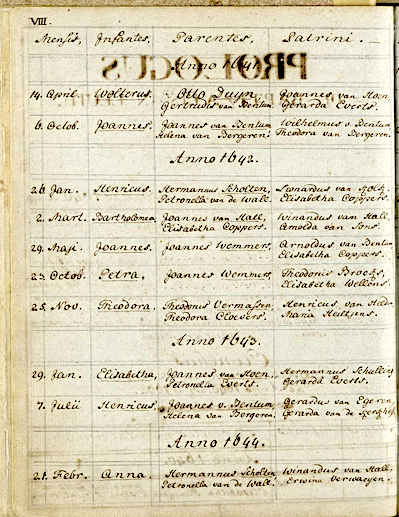 VIII.
Mensis, Infantes, Parentes, Patrini.
Anno 1641.
14. April. Wolterus. Otto Duyn Joannes van Hoen,
Gertrudis van Bentum Gerarda Everts.
6. Octob. Joannes. Joannes van Bentum Wilhelmus v. Bentum
Helena van Bergeren. Theodora van Bergeren.
Anno 1642.
26. Jan. Henricus. Hermannus Scholten, Leonardus van
Petronella van de Wall. Elisabetha Coppers.
2. Mart. Bartholomea, Joannes van Hall, Winandus van Hall,
Elisabetha Coppers. Arnolda van Sons.
29. Maji Joannes. Joannes Wemmers, Arnoldus van Bentum
Elisabetha Coppers.
23. Octob. Petra, Joannes Wemmers, Theodonis
Elisabetha Wellens.
25. Nov. Theodora, Theodonus Vermassen Henricus van
Theodora Cloevers. Maria
Anno 1643.
29. Jan. Elisabetha, Joannes van Hoen. Hermannus Schulting
Petronella Everts. Gerarda Everts.
7. Julii Henricus, Joannes v. Bentum, Gerardus van Egeren
Helena van Bergeren. Gerarda van de
Anno 1644.
21. Febr. Anna. Hermannus Scholten Winandus van Hall,
Petronella van de Wall. Erwina Verwaeyen.